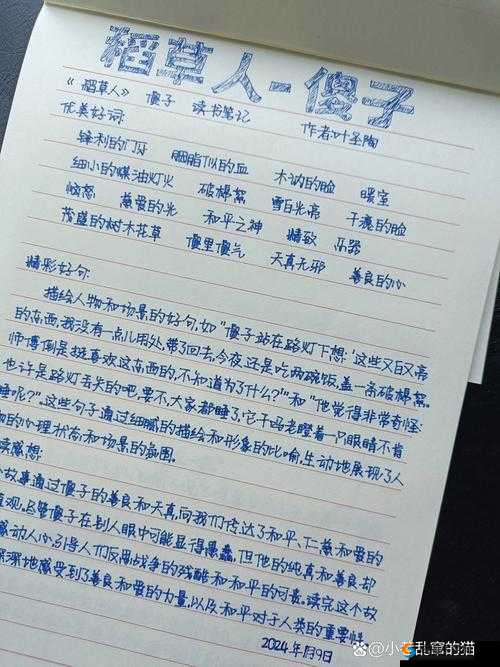 稻草人-傻子
《稻草人》 傻子 读书笔记
作者叶圣陶
优美好词:
锋利的门牙 胭脂似的血 木讷的脸 暖室
细小的煤油灯火 破棉絮 雪白光亮 干瘪的脸
恼怒 慈爱的光 和平之神 精致 乐器
茂盛的树木花草 傻里傻气 天真无邪 善良的心
精彩好句:
描绘人物和场景的好句,如"傻子站在路灯下想:'这些又白又亮
的东西,我没有一点儿用处,带了回去,今夜还是吃两碗饭,盖一条破棉絮。
师傅倒是挺喜欢这东西的,不知道为了什么?'"和"他觉得非常奇怪:
也许是路灯丢失的吧,要不,大家都睡了,它干吗老瞪着一只眼睛不肯
睡呢?"。这些句子通过细腻的描绘和形象的比喻,生动地展现了人
物的心理状态和场景的氛围。
读感想:
故事通过傻子的善良和天真,向我们传达了和平、仁慈和爱的
观。尽管傻子在别人眼中可能显得愚蠢,但他的纯真和善良却
感动人心,引导人们反思战争的残酷和和平的可贵。读完这个故
深深地感受到了善良和爱的力量,以及和平对于人类的重要性。
2024年1月9日
@小花乱窜的猫